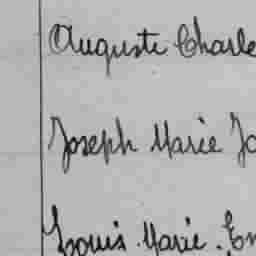 Auguste Charle
Joseph Marie Jo
Louis. Marie. Em